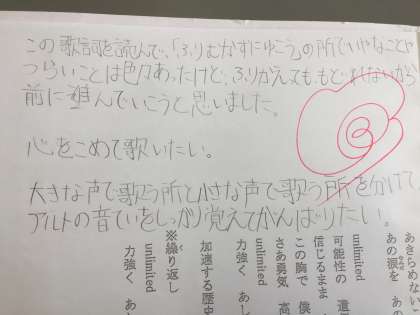 この歌詞を読んで、「ふりむかずにゆこう」の所でいやなことや
つらいことは色々あったけど、ふりかえても、もどれないから
前に進んでいこうと思いました。
心をこめて歌いたい。
大きな声で歌う所と小さな声で歌う所を分けて
アルトの音ていをしっかり覚えてがんばりたい。
あきらめない
あの涙を あの
unlimited
可能性の 遺
信じるまま
この胸で 僕
さあ勇気 高
unlimited
力強く あし
加速する歴史
※繰り返し
unlimited
力強く あ